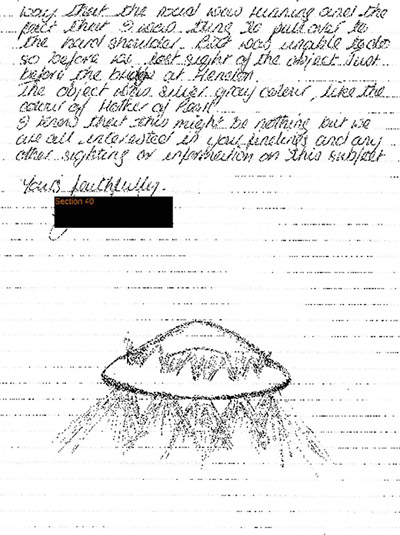 way that the road was running and the
fact that I was trying to pull over to
the hard shoulder. But was unable to do
so before we lost sight of the object. Just
before the bridge at Hendon.
The object was silver gray colour, like the
colour of Mother of Pearl.
I know that this might be nothing but we
are all interested in your findings and any
other sighting or information on this subject
Yours faithfully.
Section 40